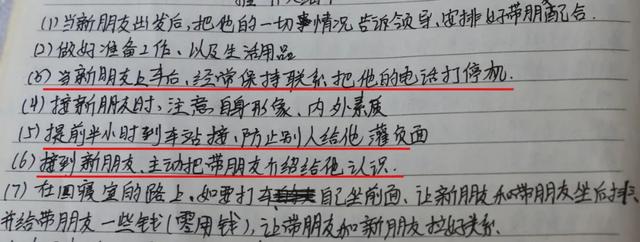 (1)当新朋友出发后,把他的一切事情况告诉领导,安排好带朋配合.
(2)做好准备工作、以及生活用品
(3)当新朋友上车后、经常保持联系把他的电话打停机.
(4)接新朋友时、注意自身形象、内外素质
(5)提前半小时到车站接、防止别人给他灌负面
(6)接到新朋友、主动把带朋友介绍给他认识.
(7)在回寝室的路上、如要打车自己坐前面、让新朋友和带朋友坐后排、
并给带朋友一些钱(零用钱),让带朋友和新朋友拉好关系.